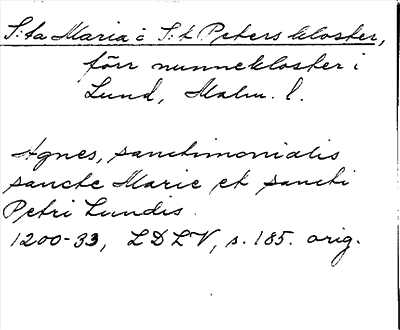 S:ta Maria o S:t Peters kloster,
förr nunnekloster i
Lund, Malm. l.
Agnes, sanctimonialis
sancte Marie et sancti
Petri Lundis.
1200-33, LDLV, s. 185. orig.